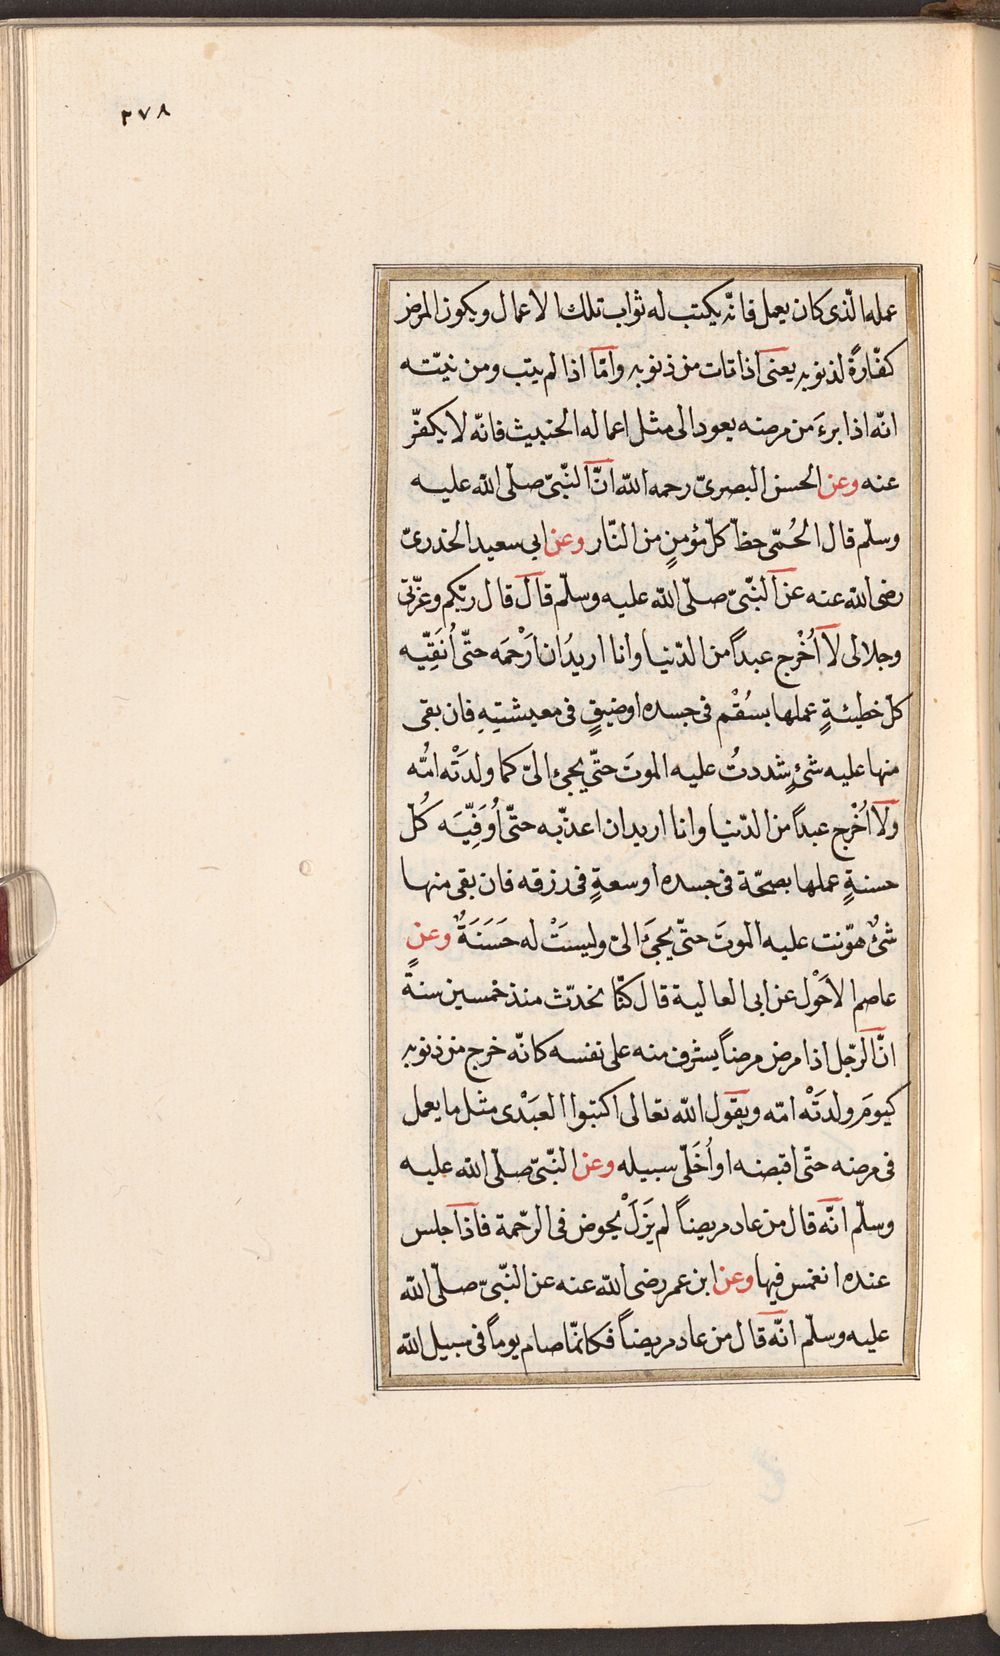 ٣٧٨
عمله الّذى كان يعمل فانّه يكتب له ثواب تلك الاعمال ويكون المرض
كفّارةً لذنوبه يعنى اذا تاب من ذنوبه وامّا اذا لم يتب ومن نيّته
انّه اذا برءَ من مرضه يعود الى مثل اعماله الخبيث فانّه لا يكفّر
عنه وعن الحسن البصرىّ رحمه اللّه انّ النّبىّ صلّى اللّه عليه
وسلّم قال الحُمّى حظّ كلّ مؤمنٍ من النّار وعن ابى سعيد الخدرىّ
رضى اللّه عنه عن النّبىّ صلّى اللّه عليه وسلّم قال قال ربّكم وعزّتى
وجلالى لا اُخْرج عبداً من الدّنيا وانا اريدُ ان اَرْحمَه حتّى اُنَقِّيه
كلّ خطيئةٍ عملها بسُقْم فى جسده او ضيقٍ فى معيشتِهِ فان بقى
منها عليه شئٍ شددتُ عليه الموتَ حتّى يجئ الىّ كما ولدَتْه امُّه
ولا اُخْرج عبداً من الدّنيا وانا اريد ان اعذّبه حتّى اُوَفِّيَه كُلّ
حسنةٍ عملها بصحّة فى جسده او سعةٍ فى رزقه فان بقى منها
شئٌ هوّنت عليه الموتَ حتّى يجئَ الىّ وليسَتْ له حَسَنَةٌ وعن
عاصم الاَحْول عن ابى العالية قال كنّا نحدّث منذ خمسين سنةً
انّ الرّجل اذا مرض مرضاً يشرف منه على نفسه كانّه خرج من ذنوبه
كيومَ ولدَتْه امّه ويقول اللّه تعالى اكتبوا العبَدْى مثل ما يعمل
فى مرضه حتّى اقبضه او اُخَلّى سبيله وعن النّبىّ صلّى اللّه عليه
وسلّم انّه قال من عاد مريضاً لم يَزَلْ يخوض فى الرّحمة فاذا جلس
عنده انغمس فيها وعن ابن عمر رضى اللّه عنه عن النّبىّ صلّى اللّه
عليه وسلّم انّه قال من عاد مريضاً فكانّما صام يوماً فى سبيل اللّه